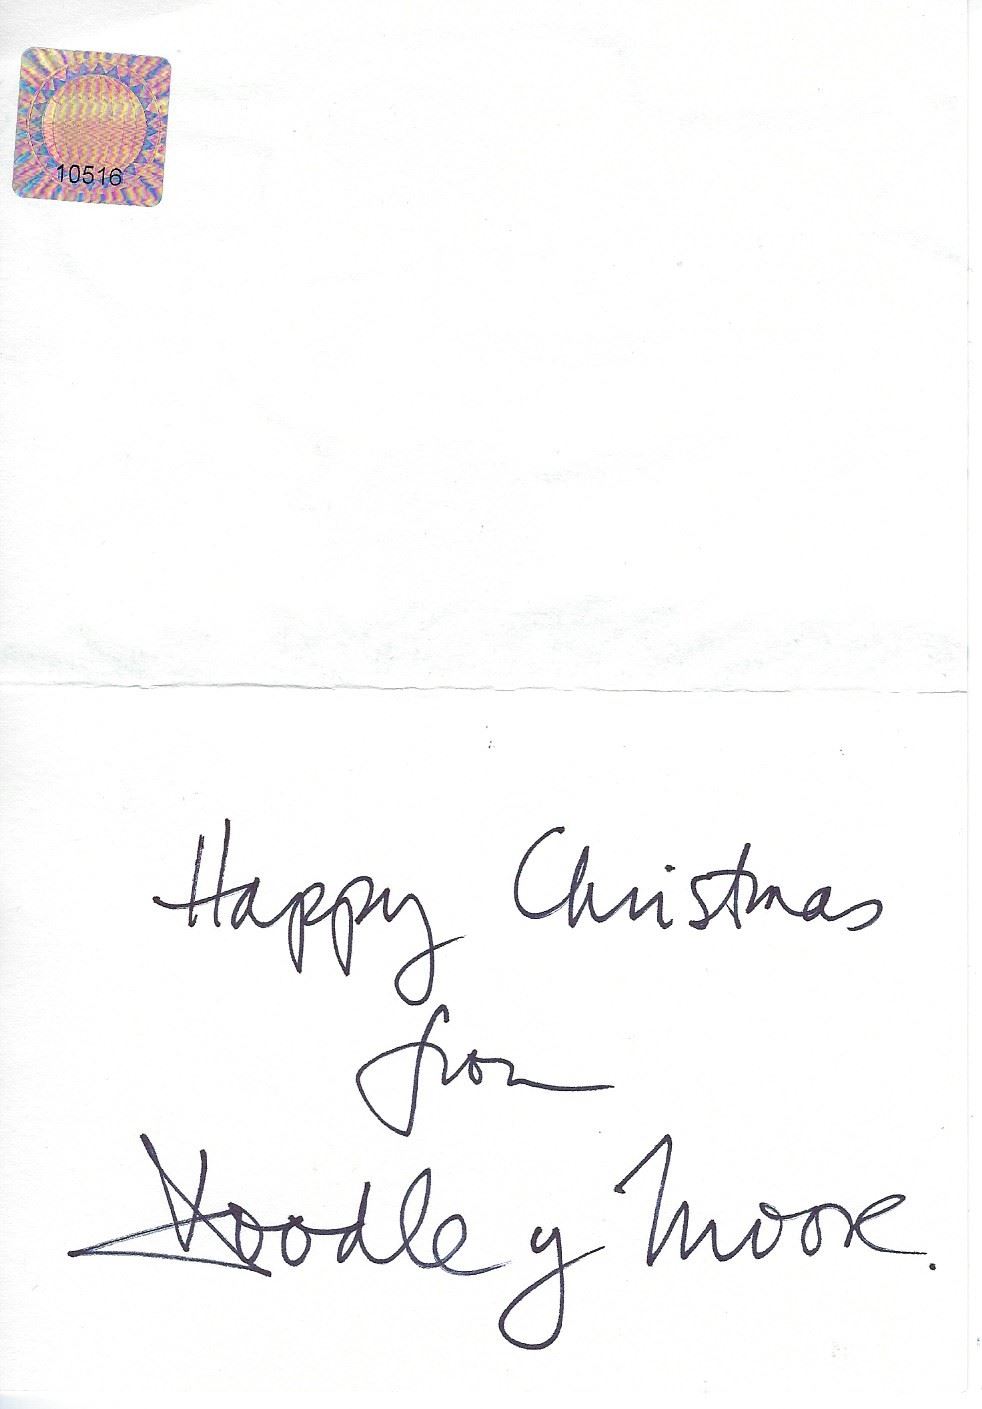 10516
Happy Christmas
from
Doodley Moore.